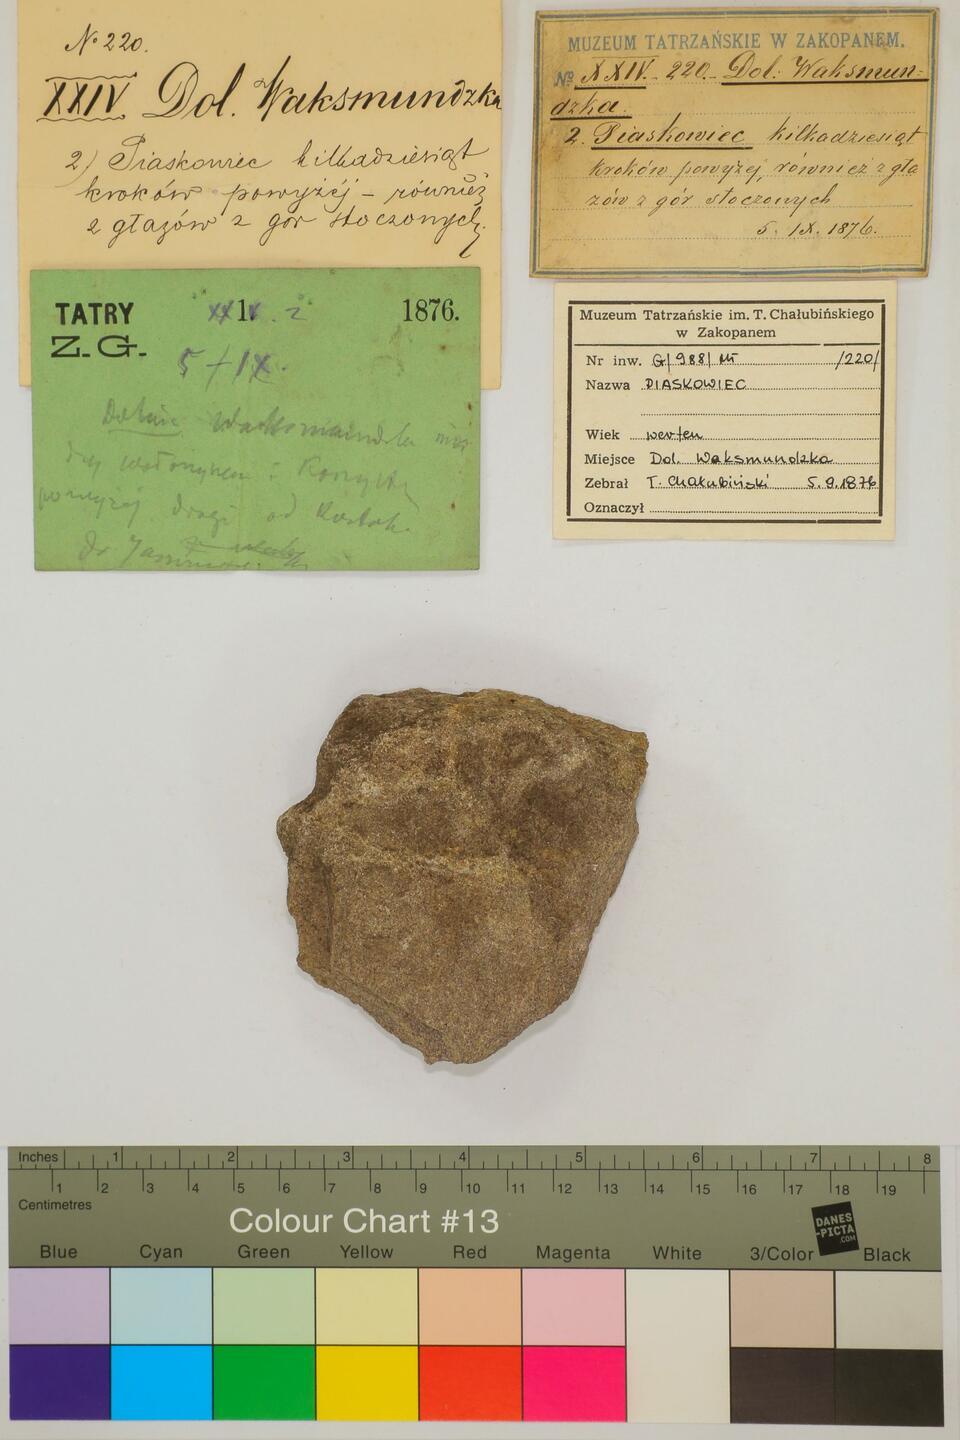 № 220.
XXIV Dol. Waksmundzka
2) Piaskowiec kilkadziesiąt
kroków powyżéj – równiéż
z głazów z gór stoczonych.
MUZEUM TATRZAŃSKIE W ZAKOPANEM.
№ XXIV. - 220. - Dol: Waksmun-
dzka.
2. Piaskowiec kilkadziesiąt
kroków powyżej, również z gła
zów z gór stoczonych
5. IX. 1876.
TATRY 1876.
Z. G.
5 / IX.
Waksmundzka
powyżéj drogi od
Dr
Muzeum Tatrzańskie im. T. Chałubińskiego
w Zakopanem
Nr inw. G/988/MT /220/
Nazwa PIASKOWIEC
Wiek werfen
Miejsce Dol. Waksmundzka
Zebrał T. Chałubiński 5.9.1876
Oznaczył
Inches 1 2 3 4 5 6 7 8
1 2 3 4 5 6 7 8 9 10 11 12 13 14 15 16 17 18 19
Centimetres
Colour Chart #13
DANES
-PICTA
.COM
Blue Cyan Green Yellow Red Magenta White 3/Color Black